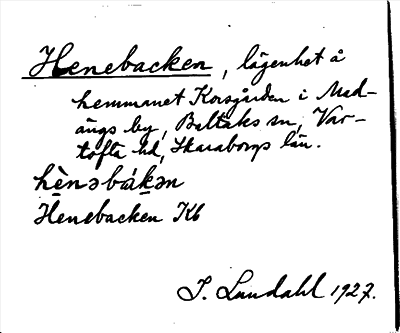 Henebacken, lägenhet å
hemmanet Korsgården i Mad-
ängs by, Baltaks sn, Var-
tofta hd, Skaraborgs län.
hènəbákən
Henebacken Kb
J. Lundahl 1927.